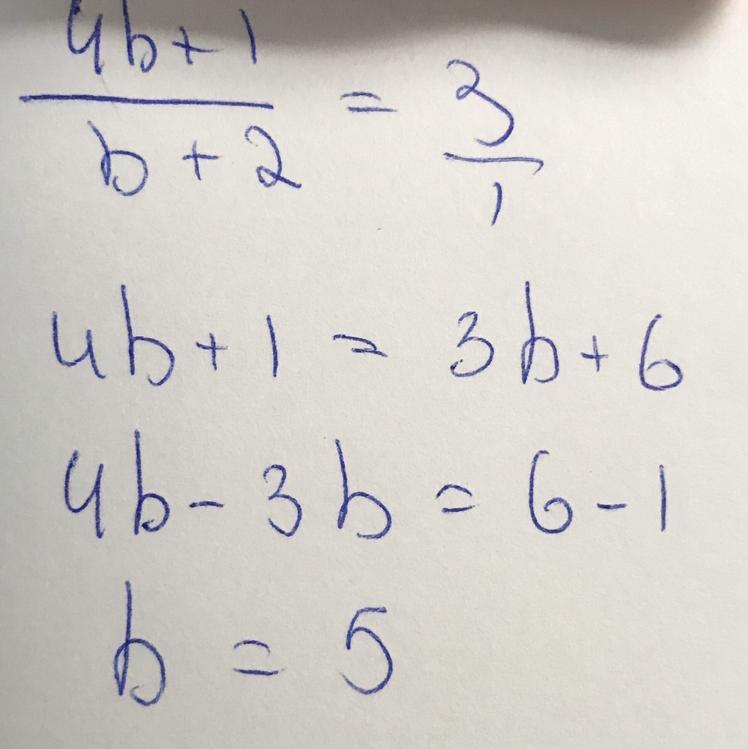 4b+1
b+2 = 3
1
4b+1 = 3b+6
4b-3b = 6-1
b = 5